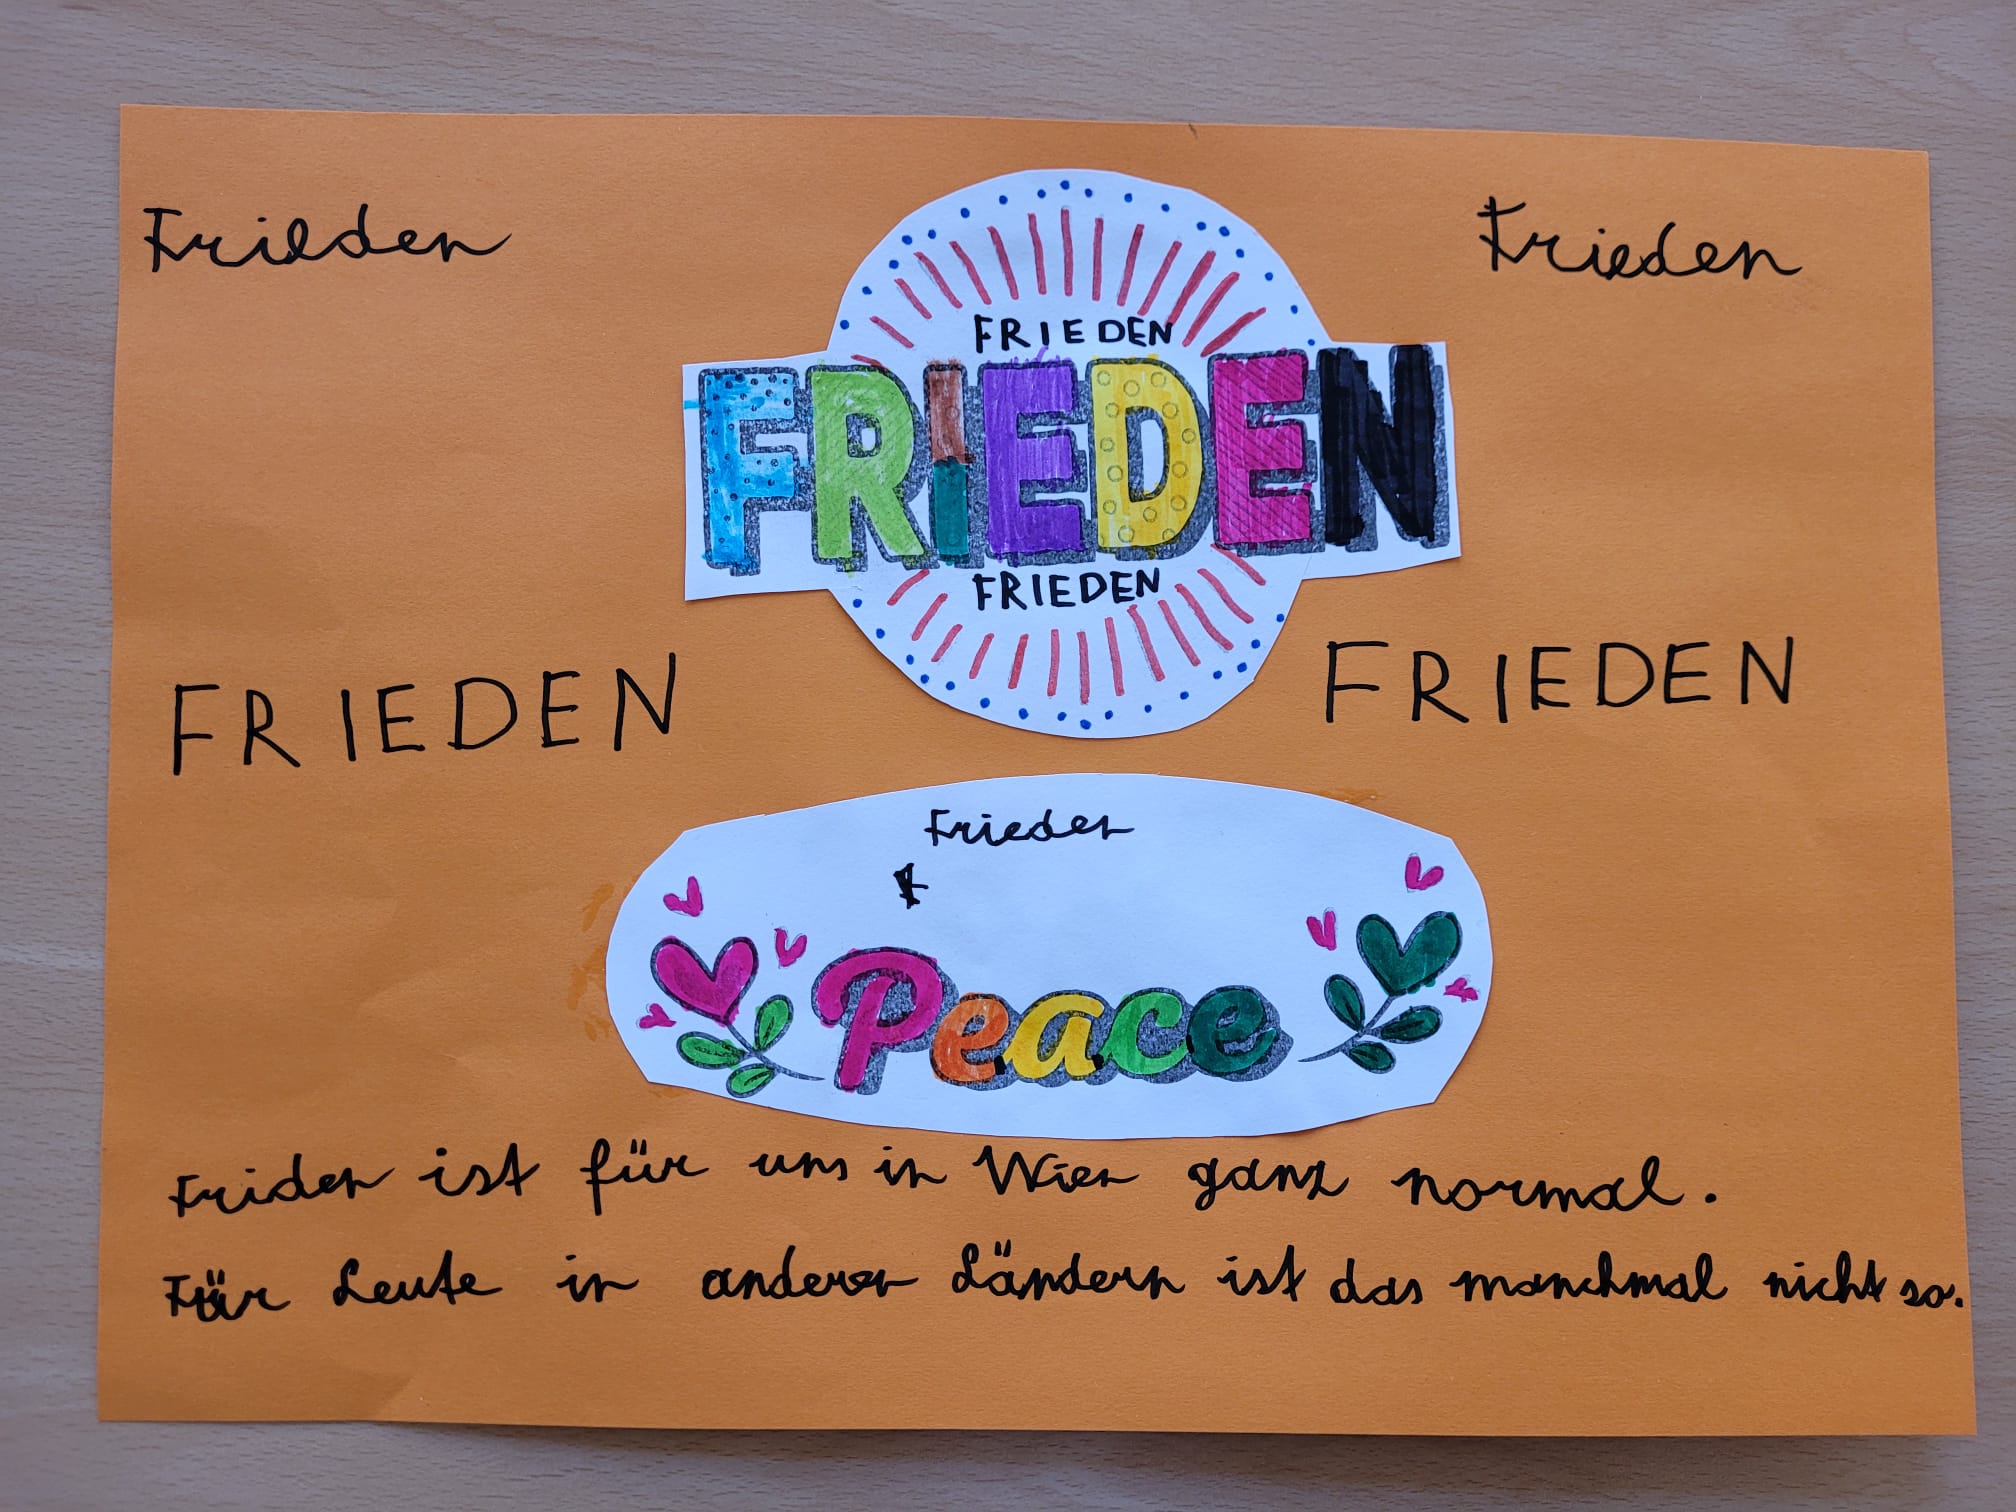 Frieden
Frieden
FRIEDEN
FRIEDEN
FRIEDEN
FRIEDEN
FRIEDEN
Frieden
Peace
Friden ist für uns in Wien ganz normal.
Für Leute in anderen Ländern ist das manchmal nicht so.